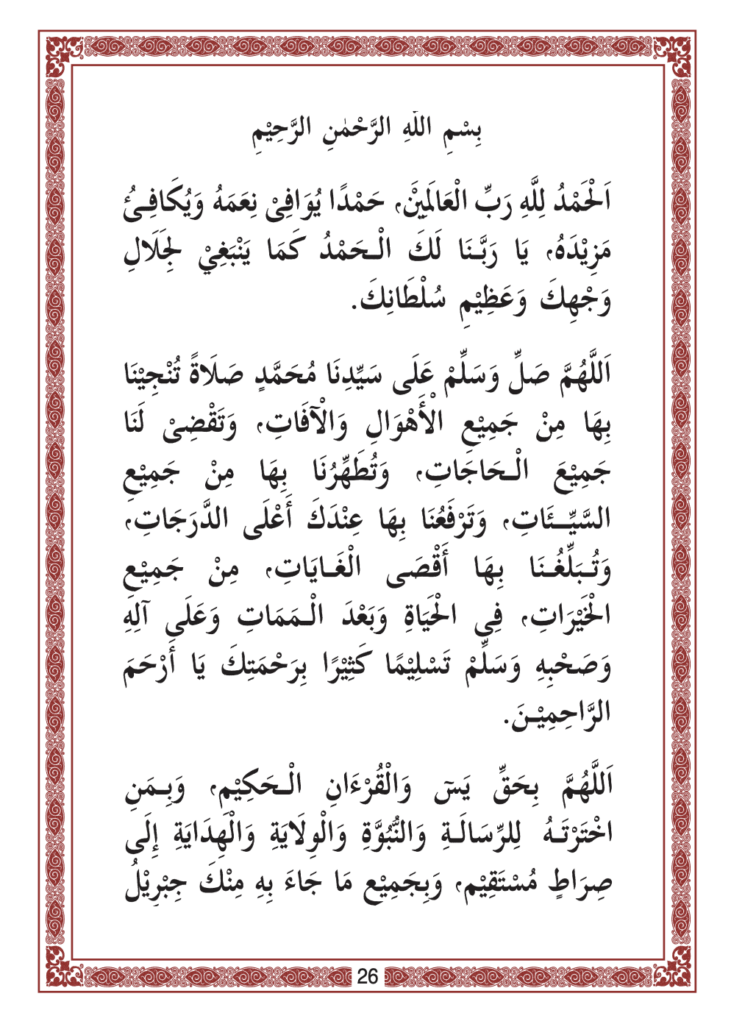 بِسْمِ اللّٰهِ الرَّحْمٰنِ الرَّحِيْمِ
اَلْحَمْدُ لِلَّهِ رَبِّ الْعَالَمِيْنَ، حَمْدًا يُوَافِىْ نِعَمَهُ وَيُكَافِـئُ
مَزِيْدَهُ، يَا رَبَّـنَا لَكَ الْـحَمْدُ كَمَا يَنْبَغِيْ لِجَلَالِ
وَجْهِكَ وَعَظِيْمِ سُلْطَانِكَ.
اَللَّهُمَّ صَلِّ وَسَلِّمْ عَلَى سَيِّدِنَا مُحَمَّدٍ صَلَاةً تُنْجِيْنَا
بِهَا مِنْ جَمِيْعِ الْأَهْوَالِ وَالْآفَاتِ، وَتَقْضِىْ لَنَا
جَمِيْعَ الْـحَاجَاتِ، وَتُطَهِّرُنَا بِهَا مِنْ جَمِيْعِ
السَّيِّـئَاتِ، وَتَرْفَعُنَا بِهَا عِنْدَكَ أَعْلَى الدَّرَجَاتِ،
وَتُـبَلِّغُـنَا بِهَا أَقْصَى الْغَـايَاتِ، مِنْ جَمِيْعِ
الْخَيْرَاتِ، فِي الْحَيَاةِ وَبَعْدَ الْـمَمَاتِ وَعَلَى آلِهِ
وَصَحْبِهِ وَسَلِّمْ تَسْلِيْمًا كَثِيْرًا بِرَحْمَتِكَ يَا أَرْحَمَ
الرَّاحِمِيْـنَ.
اَللَّهُمَّ بِحَقِّ يَسٓ وَالْقُرْءَانِ الْـحَكِيْمِ، وَبِـمَنِ
اخْتَرْتَـهُ لِلرِّسَالَـةِ وَالنُّبُوَّةِ وَالْوِلَايَةِ وَالْهِدَايَةِ إِلَى
صِرَاطٍ مُسْتَقِيْمٍ، وَبِجَمِيْعِ مَا جَاءَ بِهِ مِنْكَ جِبْرِيْلُ
26